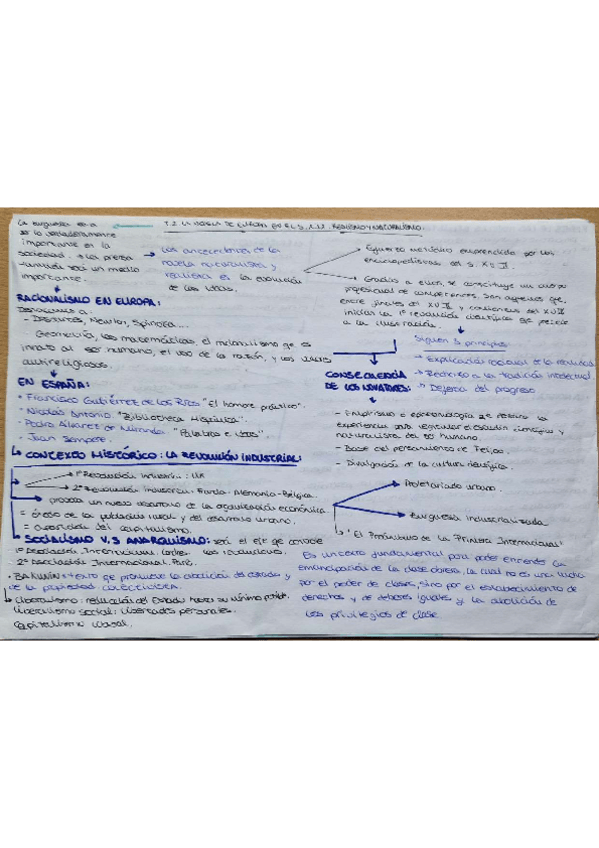 La burguesía va a
ser lo verdaderamente
importante en la
sociedad. → La prensa
también será un medio
importante.
EN EL S. XIX. REALISMO Y NATURALISMO.
Los antecedentes de la
novela naturalista y
realista es la evolución
de las ideas.
Esfuerzo metódico emprendido por los
enciclopedistas del s. XVIII.
Gracias a ellos, se constituye un cuerpo
profesional de competentes. Son aquellos que,
entre finales del XVII y comienzos del XVIII
inician la 1ª revolución científica que precede
a la Ilustración.
Siguen 3 principios:
→ Explicación racional de la realidad
→ Rechazo a la tradición intelectual.
→ Defensa del progreso
RACIONALISMO EN EUROPA:
Destacamos a:
- Descartes, Newton, Spinoza...
Geometría, las matemáticas, el mecanicismo que es
innato al ser humano, el uso de la razón, y los
antirreligiosos.
EN ESPAÑA:
• Francisco Gutiérrez de los Ríos "El hombre práctico".
• Nicolás Antonio "Bibliotheca Hispánica".
• Pedro Álvarez de Miranda. "Palabras e ideas".
• Juan Sempere.
CONSECUENCIA
DE LOS NOVATORES:
- Empirismo o epistemología se
experiencia para el estudio científico y
naturalista del ser humano.
- Base del pensamiento de Feijoo
- Divulgación de la cultura científica.
CONTEXTO HISTÓRICO: LA REVOLUCIÓN INDUSTRIAL:
→ 1ª Revolución industrial: UK
→ 2ª Revolución industrial: Francia - Alemania - Bélgica.
provoca un nuevo desarrollo de la organización económica
= éxodo de la población rural y del desarrollo urbano.
= del capitalismo.
Proletariado urbano.
Burguesía industrializada
SOCIALISMO V.S ANARQUISMO: será el eje que
1ª Asociación Internacional. Londres.
2ª Asociación Internacional. París.
• BAKUNIN: texto que promueve la abolición del estado y
de la propiedad
Liberalismo: reducción del Estado hasta su mínimo posible.
Liberalismo social: libertades personales.
Capitalismo liberal.
"El Preámbulo de la Primera Internacional"
Es un texto fundamental para poder entender la
emancipación de la clase obrera, la cual no es una lucha
por el poder de clases, sino por el establecimiento de
derechos y de deberes iguales y la abolición de
los privilegios de clase.